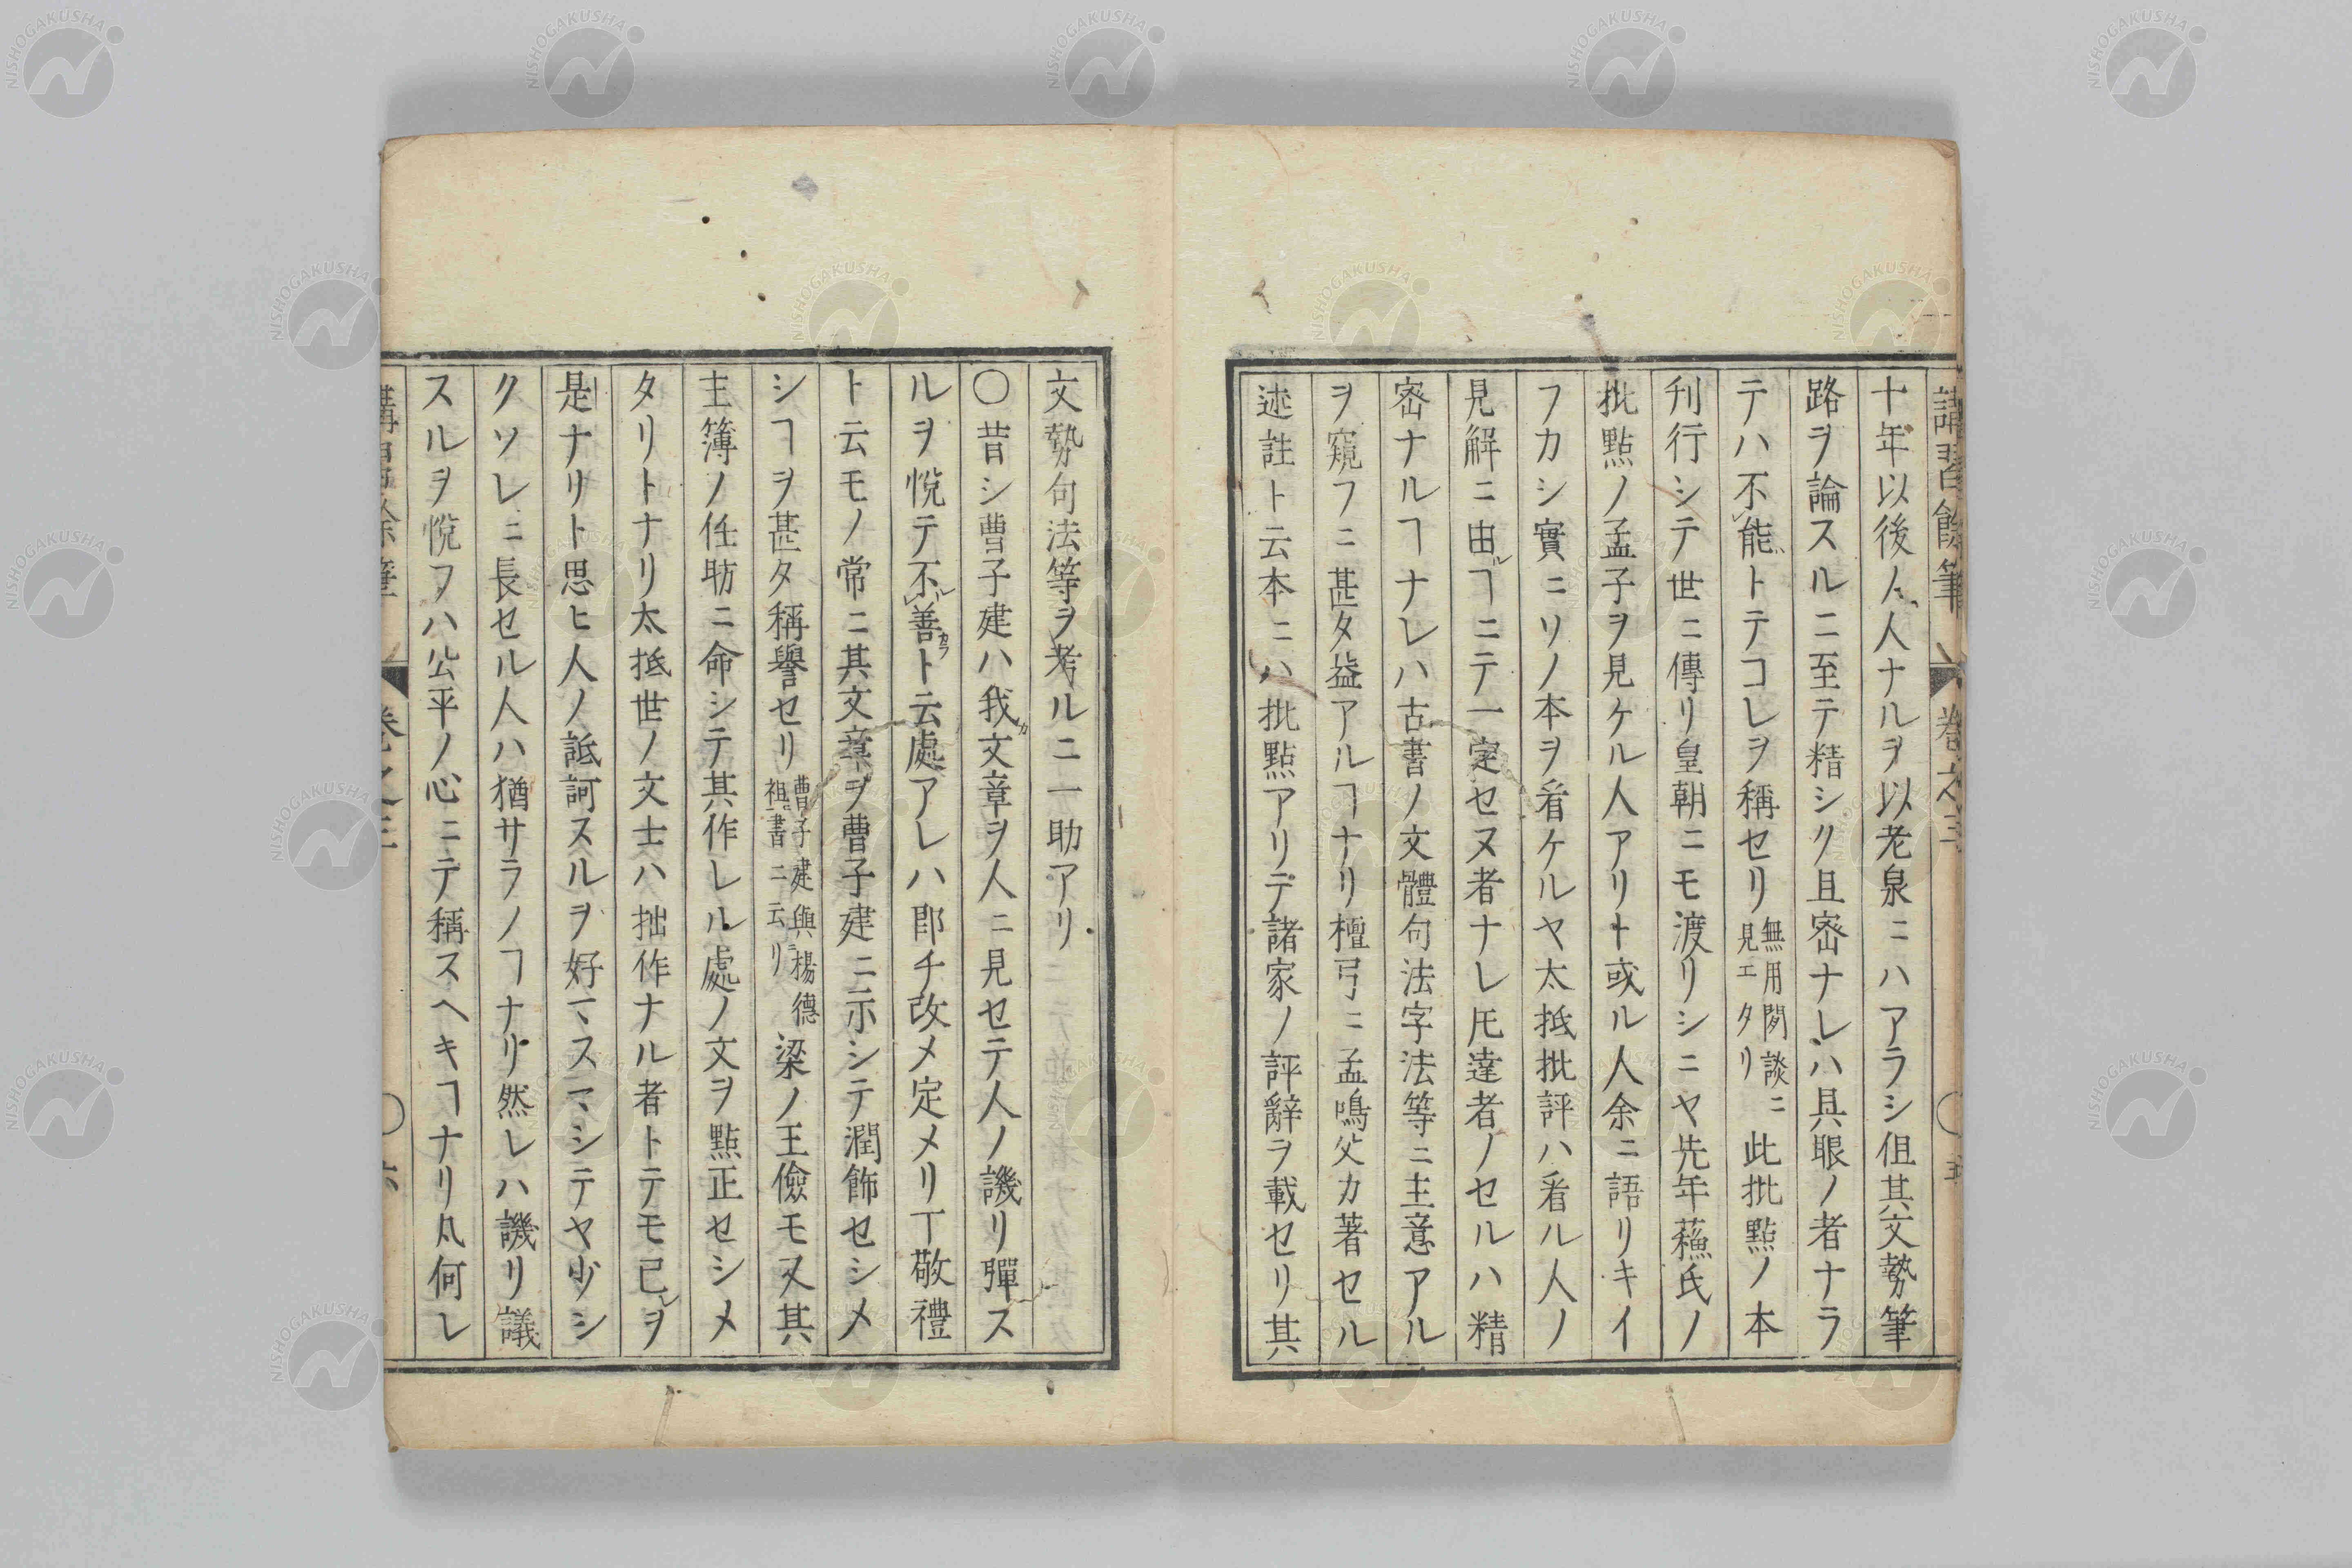 講習餘筆 卷之三 ○ 五
十年以後ノ人ナルヲ以老泉ニハアラシ但其文勢筆
路ヲ論スルニ至テ精シク且宻ナレハ具眼ノ者ナラ
テハ不能トテコレヲ稱セリ無用閒談ニ見エタリ此批點ノ本
刋行シテ世ニ傳リ皇朝ニモ渡リシニヤ先年蘓氏ノ
批點ノ孟子ヲ見ケル人アリト或ル人余ニ語リキイ
フカシ實ニソノ本ヲ看ケルヤ太抵批評ハ看ル人ノ
見解ニ由ルヿニテ一定セヌ者ナレ𪜈達者ノセルハ精
宻ナルヿナレハ古書ノ文體句法字法等ニ主意アル
ヲ窺フニ甚タ益アルヿナリ檀弓ニ孟鳴父カ著セル
述註ト云本ニハ批點アリテ諸家ノ評辭ヲ載セリ其
文勢句法等ヲ考ルニ一助アリ
○昔シ曹子建ハ我カ文章ヲ人ニ見セテ人ノ譏リ彈ス
ルヲ悅テ不ルハ善カラト云處アレハ卽チ改メ定メリ丁敬禮
ト云モノ常ニ其文章ヲ曹子建ニ示シテ潤飾セシメ
シヿヲ甚タ稱譽セリ曹子建與楊德祖書ニ云リ梁ノ王儉モ又其
主簿ノ任昉ニ命シテ其作レル處ノ文ヲ點正セシメ
タリトナリ太抵世ノ文士ハ拙作ナル者トテモ己ヲ
是ナリト思ヒ人ノ詆訶スルヲ好マスマシテヤ少シ
クソレニ長セル人ハ猶サラノヿナリ然レハ譏リ議
スルヲ悅フハ公平ノ心ニテ稱スヘキヿナリ凡何レ
講習餘筆 卷之三 ○ 六